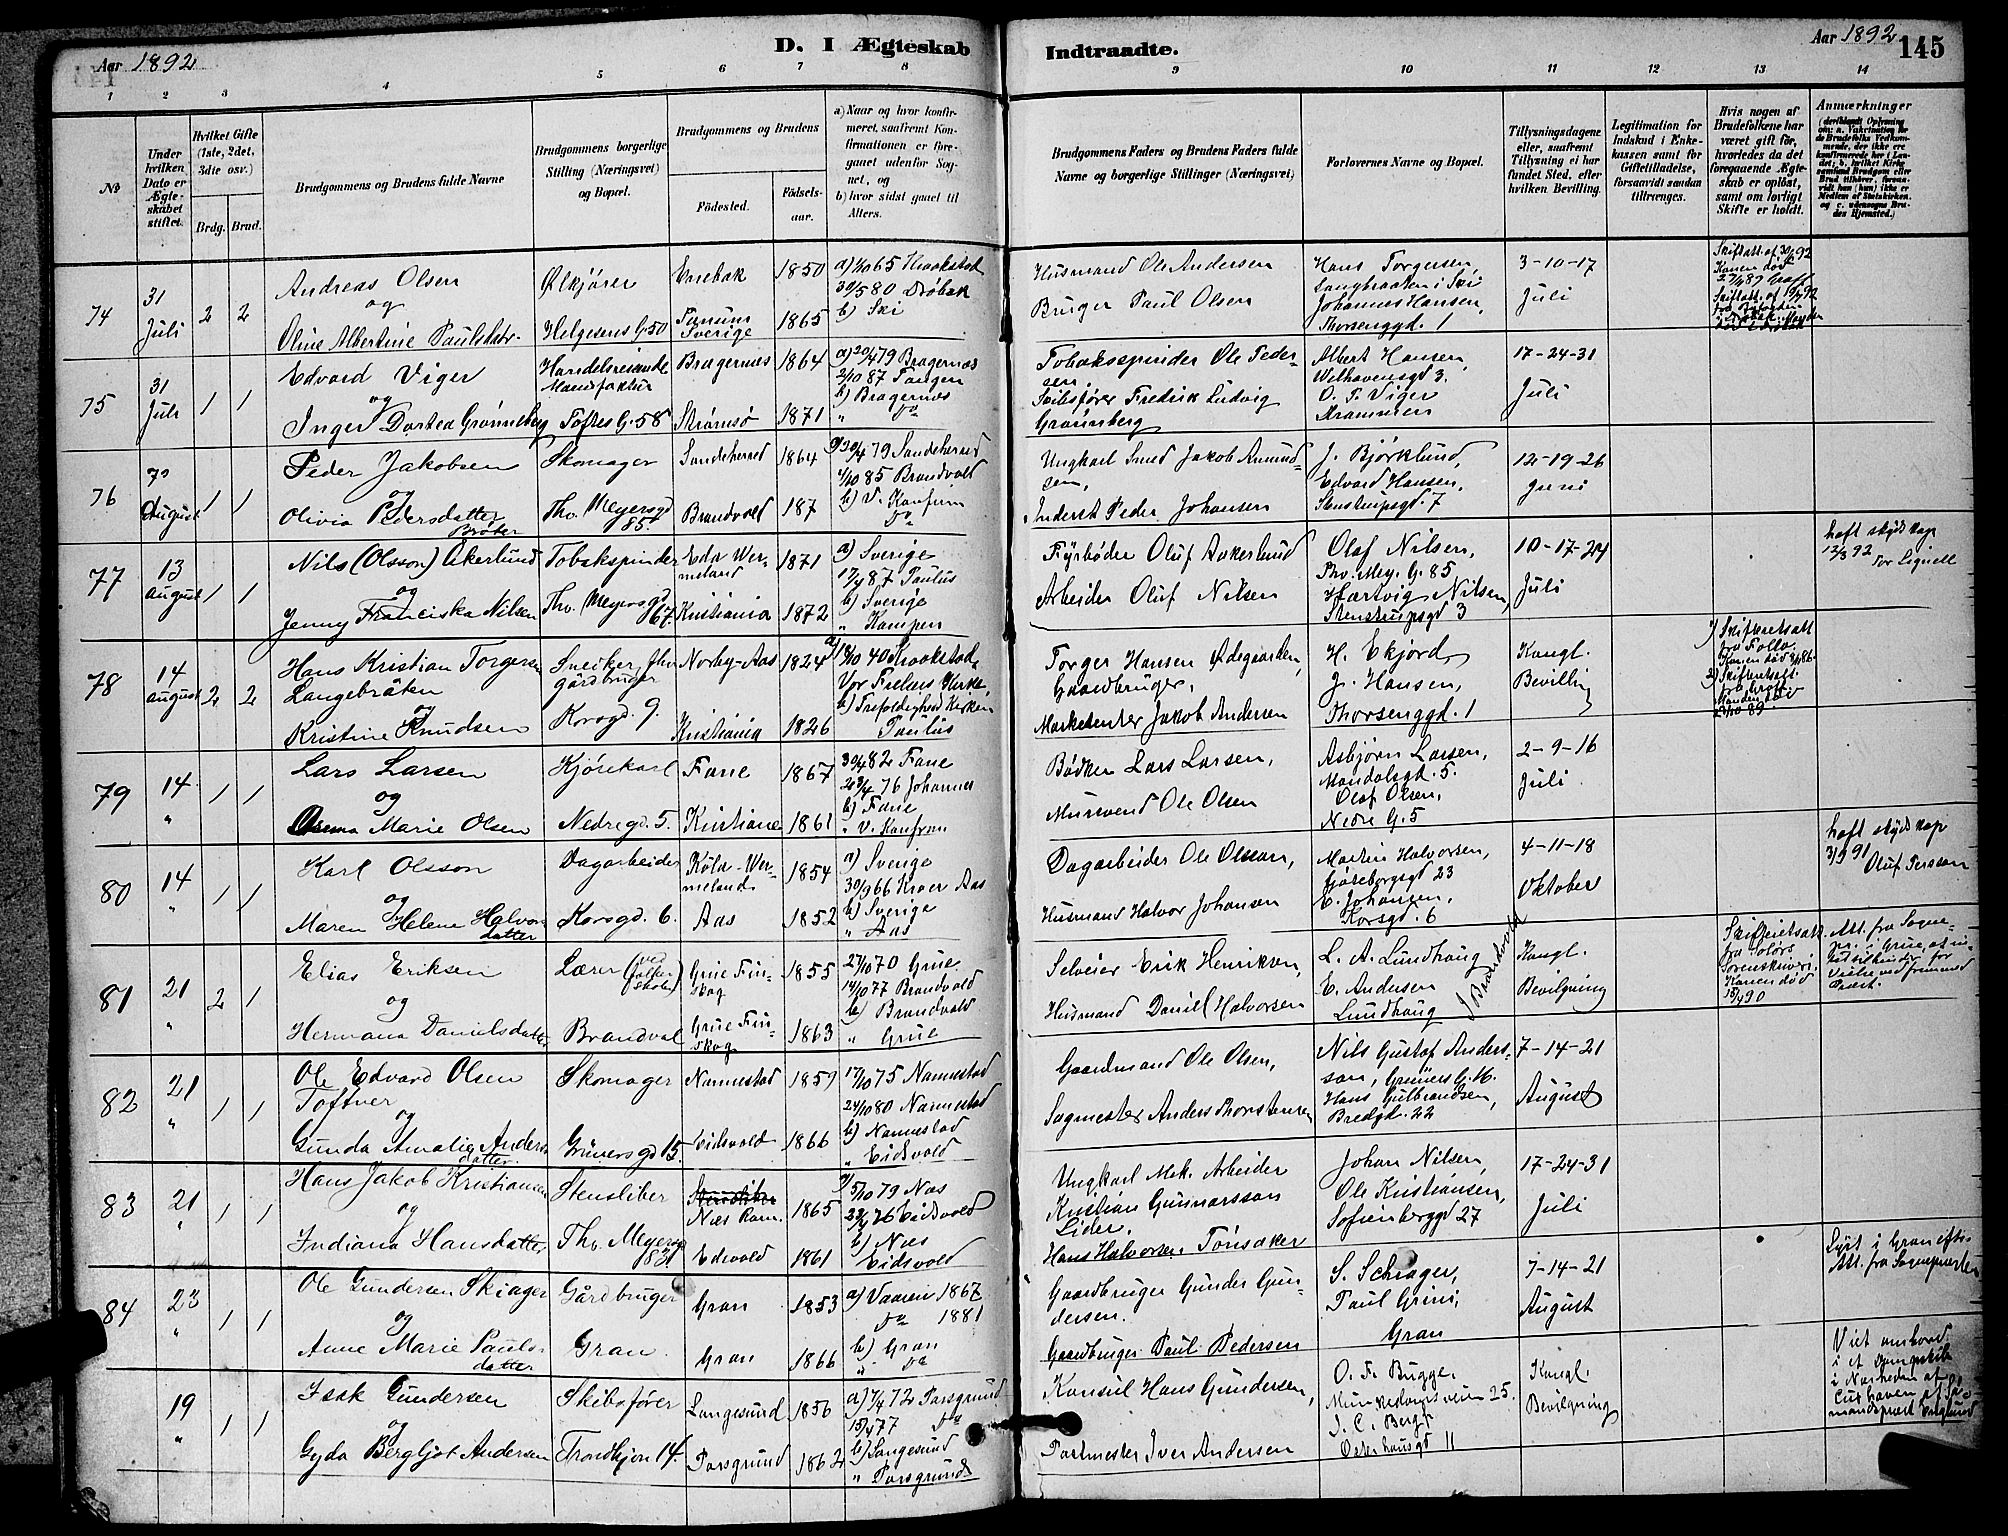 Aar 1892
D. I Ægteskab
Indtraadte.
Aar 1892
145
1 2 3 4 5 6 7 8 9 10 11 12 13 14
No
Under hvilken Dato er Ægteskabet stiftet.
Hvilket Gifte (1ste, 2det, 3die osv.)
Brdg. Brud.
Brudgommens og Brudens fulde Navne
Brudgommens borgerlige Stilling (Næringsvei) og Bopæl.
Brudgommens og Brudens
Fødested.
Fødsels-aar.
a) Naar og hvor konfirmeret, saafremt Konfirmationen er foregaaet udenfor Sognet, og
b) hvor sidst gaaet til Alters.
Brudgommens Faders og Brudens Faders fulde Navne og borgerlige Stillinger (Næringsvei)
Forlovernes Navne og Bopæl.
Tillysningsdagene eller, saafremt Tillysning ei har fundet Sted, efter hvilken Bevilling.
Legitimation for Indskud i Enkekassen samt for Giftetilladelse, forsaavidt saadan tiltrænges.
Hvis nogen af Brudefolkene har været gift før, hvorledes da det foregaaende Ægteskab er opløst, samt om lovligt Skifte er holdt.
Anmærkninger
74 31 Juli 2 2
Andreas Olsen
og
Oline Albertine Paulsdatr.
Ølkjører
Helgesens G. 50
Enebak 1850
Sverige 1865
a) 1/10 65 Kraakstad
30/5 80 Drøbak
b) Ski
Husmand Ole Andersen
Bruger Paul Olsen
Hans Torgersen,
Langbraaten i Ski
Johannes Hansen,
Thorsenggd. 1
3-10-17
Juli
75 31 Juli 1 1
Edvard Viger
og
Inger Dortea Grønneberg
Handelsreisende
Manufaktur
Toftes G. 58
Bragernæs 1864
Strømsø 1871
a) 20/4 79 Bragernæs
2/10 87 Tangen
b) Bragernæs
" do
Tobakspinder Ole Pedersen
Skibsfører Fredrik Ludvig
Grønnberg
Albert Hansen,
Welhavensgd 3.
O. P. Viger
Drammen
17-24-31
Juli
76 August 1 1
Peder Jakobsen
og
Olivia Pedersdatter
Bråten
Skomager
Thv. Meyersgd
85
Sandeherred 1864
Brandvold 187
a) 20/4 79 Sandeherred
4/10 85 Brandvold
b) V. Konfirm
do
Ungkarl Smed Jakob Amundsen,
Inderst Peder Johansen
J. Bjørklund,
Edvard Hansen,
Stenstrupsgd. 7
12-19-26
Juni
77 13 August 1 1
Nils (Olsson) Akerlund
og
Jenny Franciska Nilsen
Tobakspinder
Thv. Meyersgd
67
Eda Wermeland 1871
Kristiania 1872
a) Sverige
17/4 87 Paulus
b) Sverige
" Kampen
Fyrbøder Oluf Aakerlund
Arbeider Oluf Nilsen
Olaf Nilsen,
Thv. Mey. G. 85
Hartvig Nilsen,
Stenstrupsgd 3
10-17-24
Juli
12/3 92
78 14 August 2 2
Hans Kristian Torgersen
Langebråten
og
Kristine Knudsen
Snedker
gårdbruger
Korsgd. 9.
Norby-Aas 1824
Kristiania 1826
a) 18/10 40 Kraakstad
Vor Frelsers Kirke,
b) Trefoldighed Kirken
Paulus
Torger Hansen Ødegaarden,
Gaardbruger,
Marketenter Jakob Andersen
H. Ekjord
J. Hansen,
Thorsenggd. 1
Kongl.
Bevilling
79 14 " 1 1
Lars Larsen
og
Marie Olsen
Kjørekarl
Nedregd. 5.
Fane 1867
Kristiania 1861
30/4 82 Fane
23/4 76 Johannes
b) Fane
" V. Konfirm
Bødker Lars Larsen,
Mursvend Ole Olsen
Asbjørn Larsen,
Mandalsgd. 5.
Olaf Olsen,
Nedre G. 5
2-9-16
Juli
80 14 " 1 1
Karl Olsson
og
Maren Helene Halvorsdatter
Dagarbeider
Korsgd. 6.
Köla-Wermeland 1854
Aas 1852
a) Sverige
30/9 66 Kroer Aas
b) Sverige
" Aas
Dagarbeider Ole Olsson,
Husmand Halvor Johansen
Martin Halvorsen,
Gøteborgsgd 23
E. Johansen,
Korsgd. 6
4-11-18
Oktober
3/9 91
Oluf Persson
81 21 " 2 1
Elias Eriksen
og
Hermana Danielsdatter
Lærer (ved folkeskole)
Brandval
Grue Finskog 1855
Grue Finskog 1863
27/10 70 Grue
14/10 77 Brandvold
b) Brandvold
" Grue
Selveier Erik Henriksen
Husmand Daniel Halvorsen
L. A. Lundhaug
E. Andersen
Lundhaug
Kongl.
Bevilgning
82 21 " 1 1
Ole Edvard Olsen
Toftner
og
Gunda Amalie Andersdatter
Skomager
Grünersgd 15.
Nannestad 1859
Eidsvold 1866
17/10 75 Nannestad
24/10 80 Nannestad
b) Nannestad
" Eidsvold
Gaardmand Ole Olsen,
Sagmester Anders Thorstensen
Nils Gustaf Andersson, Grüners G. 16.
Hans Gulbrandsen,
Bredgd. 22
7-14-21
August
83 21 " 1 1
Hans Jakob Kristiansen
og
Indiana Hansdatter
Stensliber
Thv. Meyersg
83
Næs Rom. 1865
Edsvold 1861
a) 5/10 79 Næs
23/4 76 Eidsvold
b) Næs
Eidsvold
Ungkarl Mek. Arbeider
Kristian Gunnarsson
Lider,
Hans Halvorsen Tønsaker
Johan Nilsen,
Ole Kristiansen,
Sofienberggd 27
17-24-31
Juli
84 23 " 1 1
Ole Gundersen Skiager
og
Anne Marie Paulsdatter
Gårdbruger
Gran
Gran 1853
Gran 1866
a) Vaaren 1867
do 1881
b) Gran
" do
Gaardbruger Gunder Gundersen.
Gaardbruger Paul Pedersen
S. Schiager,
Paul Grini,
Gran
7-14-21
August
Lyst i Gran efter
Att. fra Sognepræsten
19 " 1 1
Isak Gundersen
og
Gyda Bergljot Andersen
Skibsfører
Trondhjem 14.
Langesund 1856
Porsgrund 1862
a) 7/4 72 Porsgrund
15/4 77 do
b) Langesund
" Porsgrund
Konsul Hans Gundersen,
Postmester Iver Andersen
O. F. Bugge,
Munkedamsveien 25.
J. C. Berg,
Osterhausgd 11
Kongl.
Bevilgning
Viet ombord
i et Dampskib
i Nordsøen af